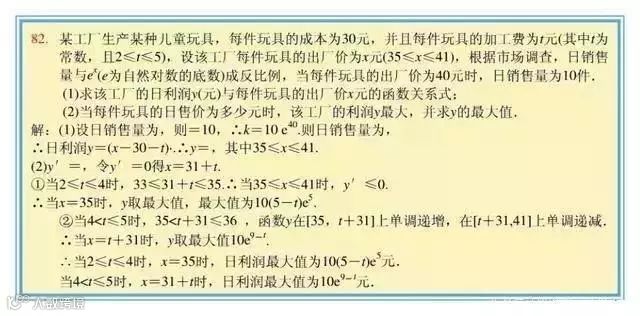 82. 某工厂生产某种儿童玩具，每件玩具的成本为30元，并且每件玩具的加工费为t元(其中t为
常数，且2≤t≤5)，设该工厂每件玩具的出厂价为x元(35≤x≤41)，根据市场调查，日销售
量与eˣ(e为自然对数的底数)成反比例，当每件玩具的出厂价为40元时，日销售量为10件．
(1)求该工厂的日利润y(元)与每件玩具的出厂价x元的函数关系式；
(2)当每件玩具的日售价为多少元时，该工厂的利润y最大，并求y的最大值．
解：(1)设日销售量为，则=10，∴k=10 e⁴⁰.则日销售量为，
∴日利润y=(x－30－t)·.∴y=，其中35≤x≤41.
(2)y′＝，令y′＝0得x=31＋t.
①当2≤t≤4时，33≤31＋t≤35.∴当35≤x≤41时，y′≤0.
∴当x=35时，y取最大值，最大值为10(5－t)e⁵.
②当4<t≤5时，35<t+31≤36，函数y在[35，t+31]上单调递增，在[t+31,41]上单调递减．
∴当x=t+31时，y取最大值10e⁹⁻ᵗ.
∴当2≤t≤4时，x=35时，日利润最大值为10(5－t)e⁵元．
当4<t≤5时，x=31＋t时，日利润最大值为10e⁹⁻ᵗ元．